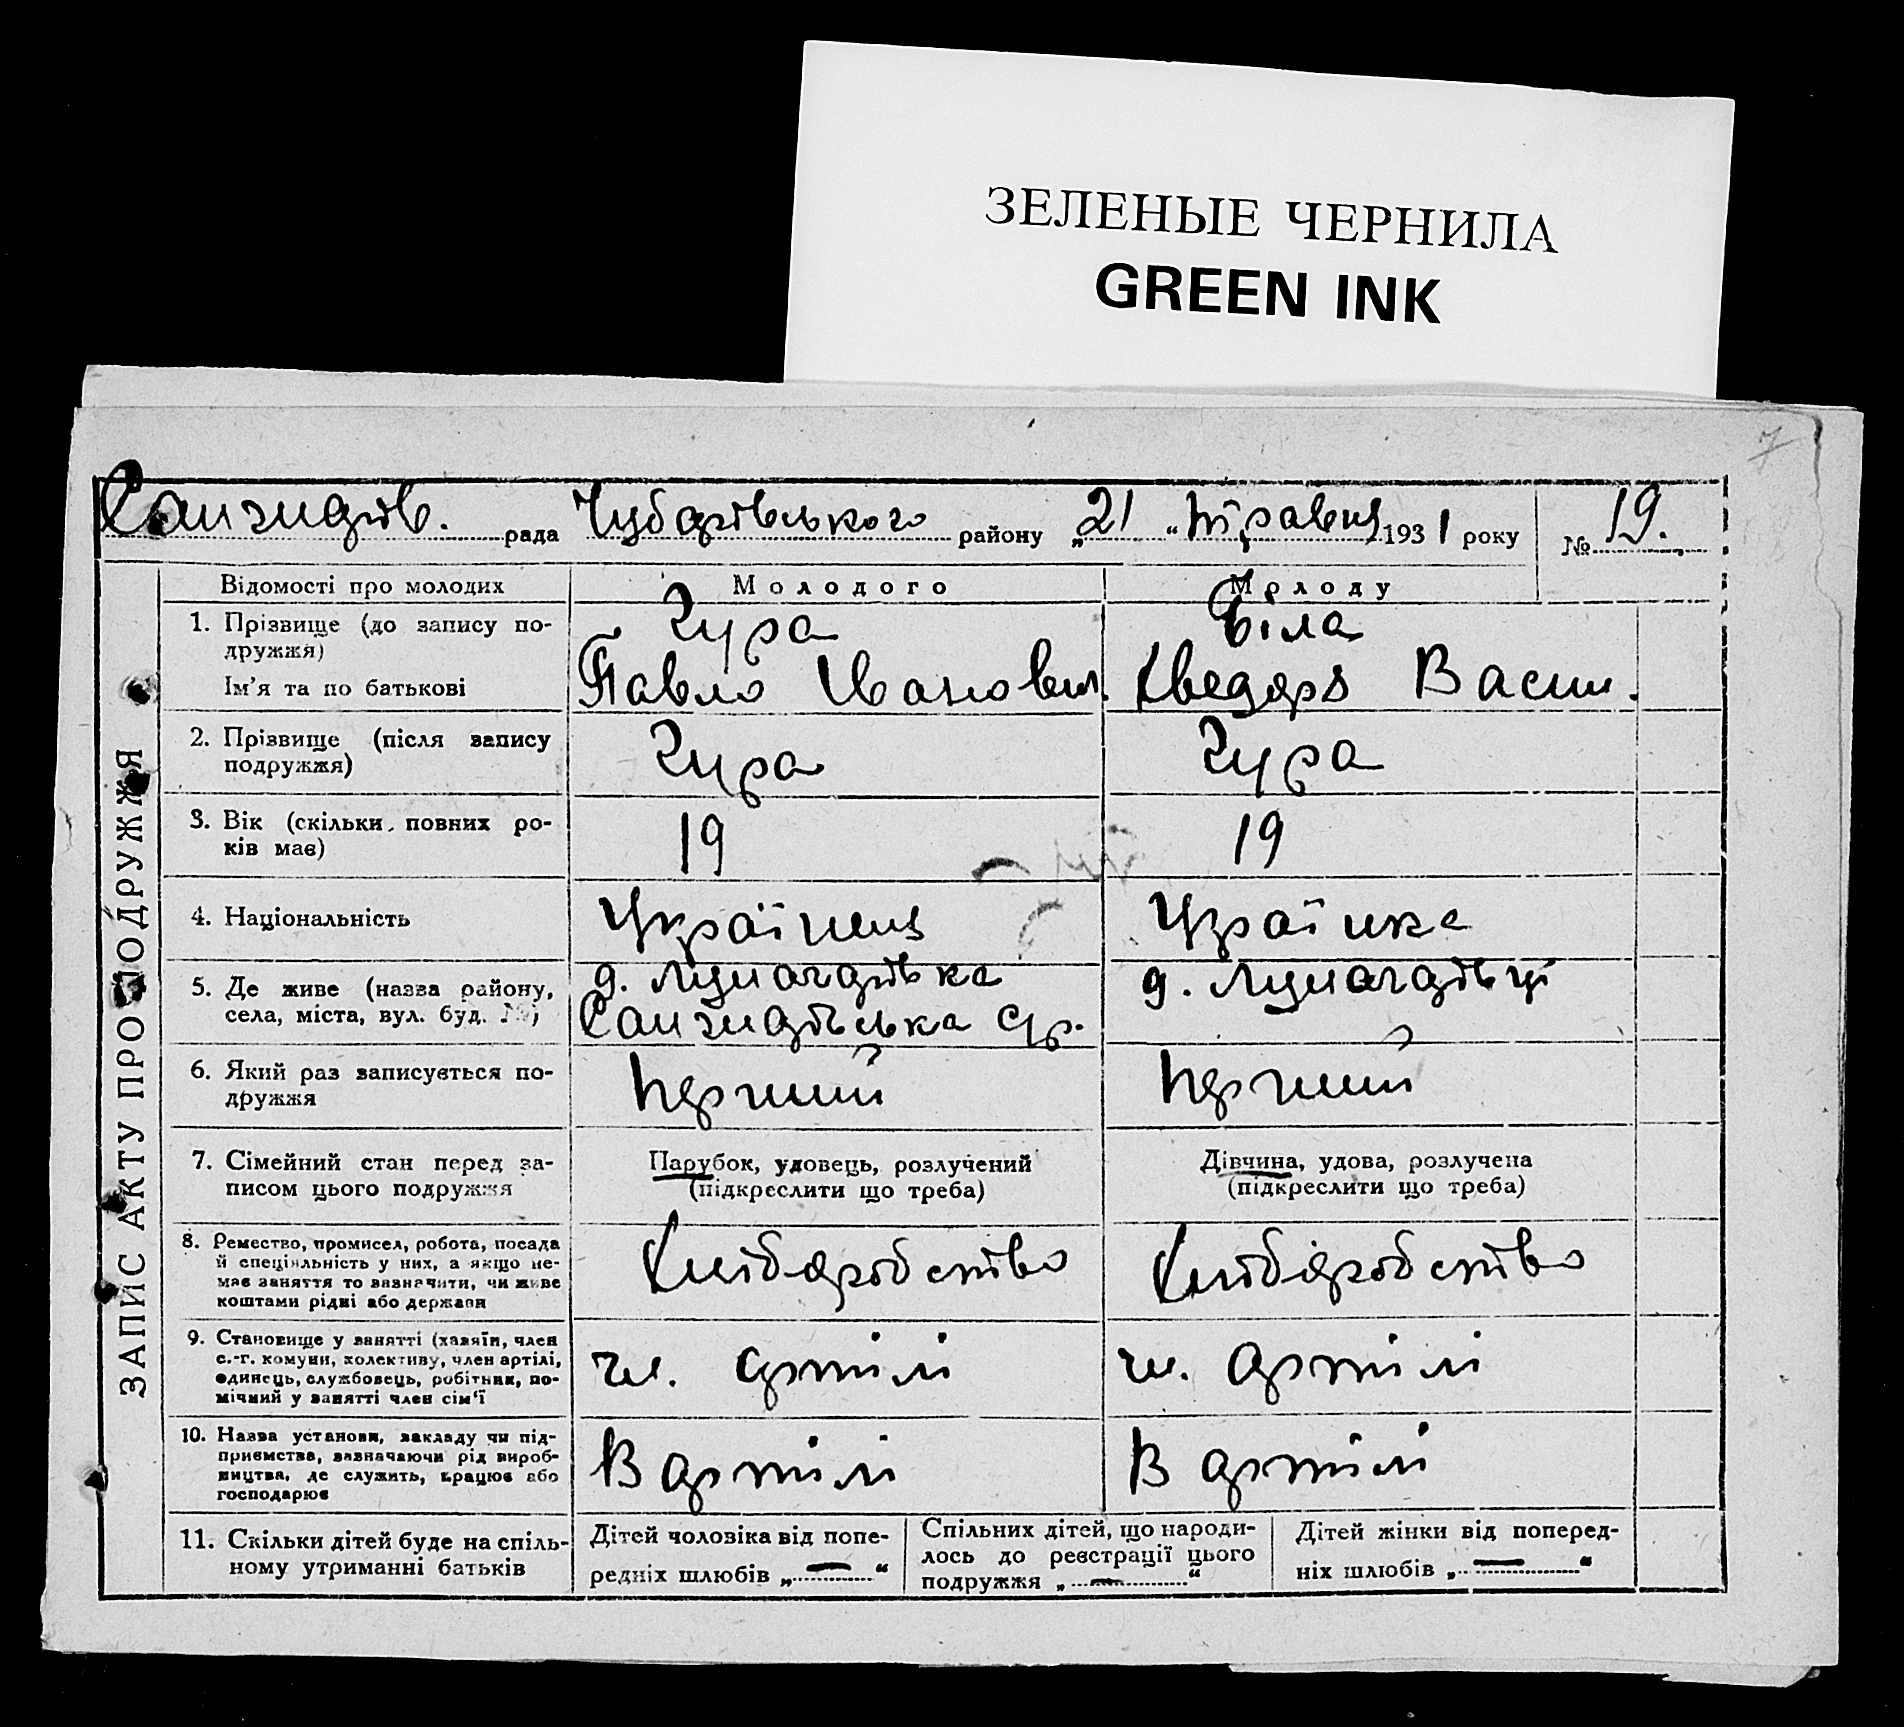 ЗЕЛЕНЫЕ ЧЕРНИЛА
GREEN INK
7
рада Чубарівського району „21“ Травня 1931 року № 19.
ЗАПИС АКТУ ПРО ПОДРУЖЖЯ
Відомості про молодих Молодого Молоду
1. Прізвище (до запису по-
дружжя)
Чура Біла
Ім'я та по батькові
Павло Іванович. Хведора Васил.
2. Прізвище (після запису
подружжя)
Чура Чура
3. Вік (скільки повних ро-
ків має)
19 19
4. Національність
Українець Українка
5. Де живе (назва району,
села, міста, вул. буд. №)
6. Який раз записується по-
дружжя
Перший Перший
7. Сімейний стан перед за-
писом цього подружжя
Парубок, удовець, розлучений
(підкреслити що треба)
Дівчина, удова, розлучена
(підкреслити що треба)
8. Ремество, промисел, робота, посада
й спеціяльність у них, а якщо не-
має заняття то зазначити, чи живе
коштами рідні або держави
Хліборобство Хліборобство
9. Становище у занятті (хазяїн, член
с.-г. комуни, колективу, член артілі,
одинець, службовець, робітник, по-
мічний у занятті член сім'ї
чл. артілі чл. артілі
10. Назва установи, закладу чи під-
приємства, зазначаючи рід вироб-
ництва, де служить, працює або
господарює
В артілі В артілі
11. Скільки дітей буде на спіль-
ному утриманні батьків
Дітей чоловіка від попе-
редніх шлюбів „—“
Спільних дітей, що народи-
лось до реєстрації цього
подружжя „—“
Дітей жінки від поперед-
ніх шлюбів „—“